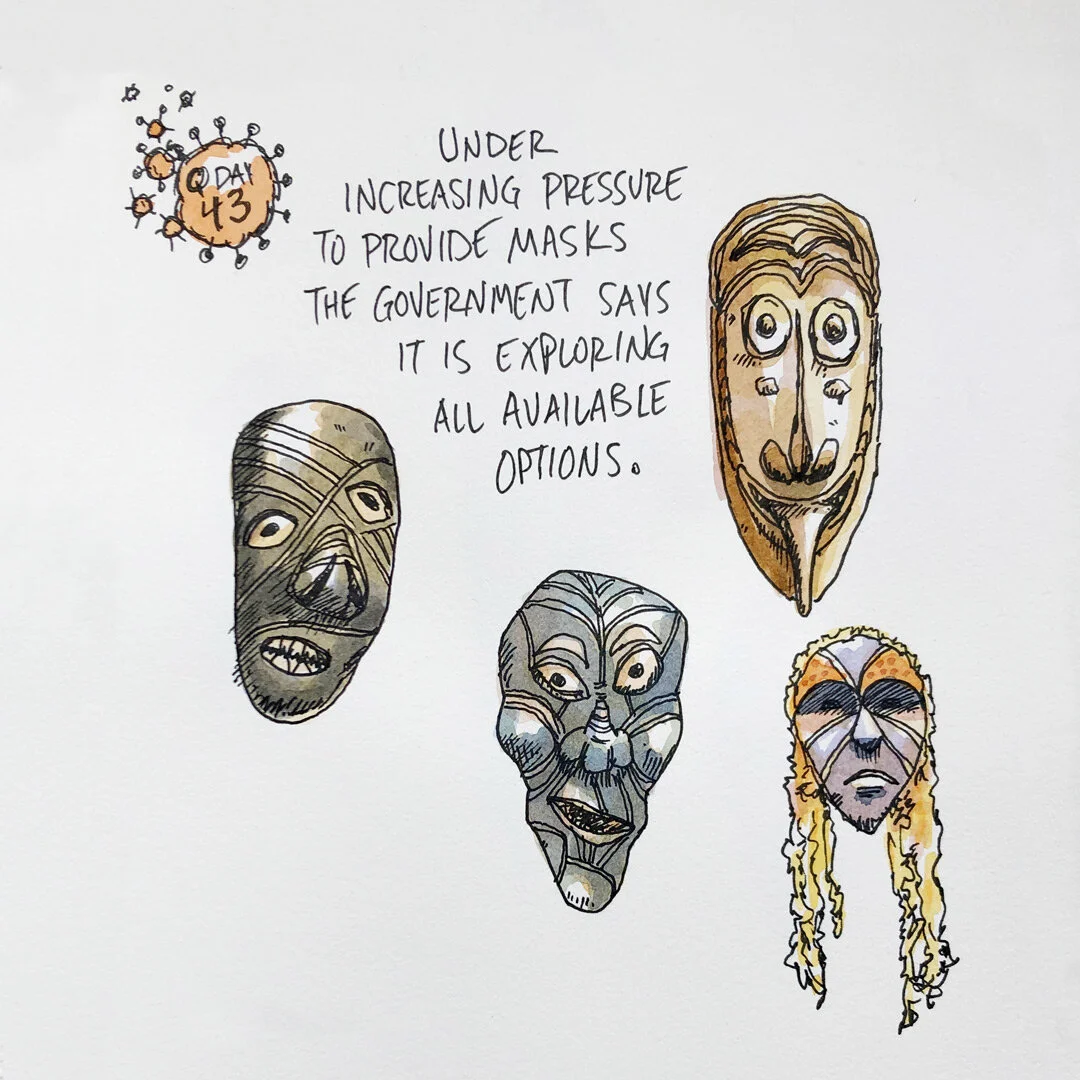 Q DAY
43
UNDER
INCREASING PRESSURE
TO PROVIDE MASKS
THE GOVERNMENT SAYS
IT IS EXPLORING
ALL AVAILABLE
OPTIONS.